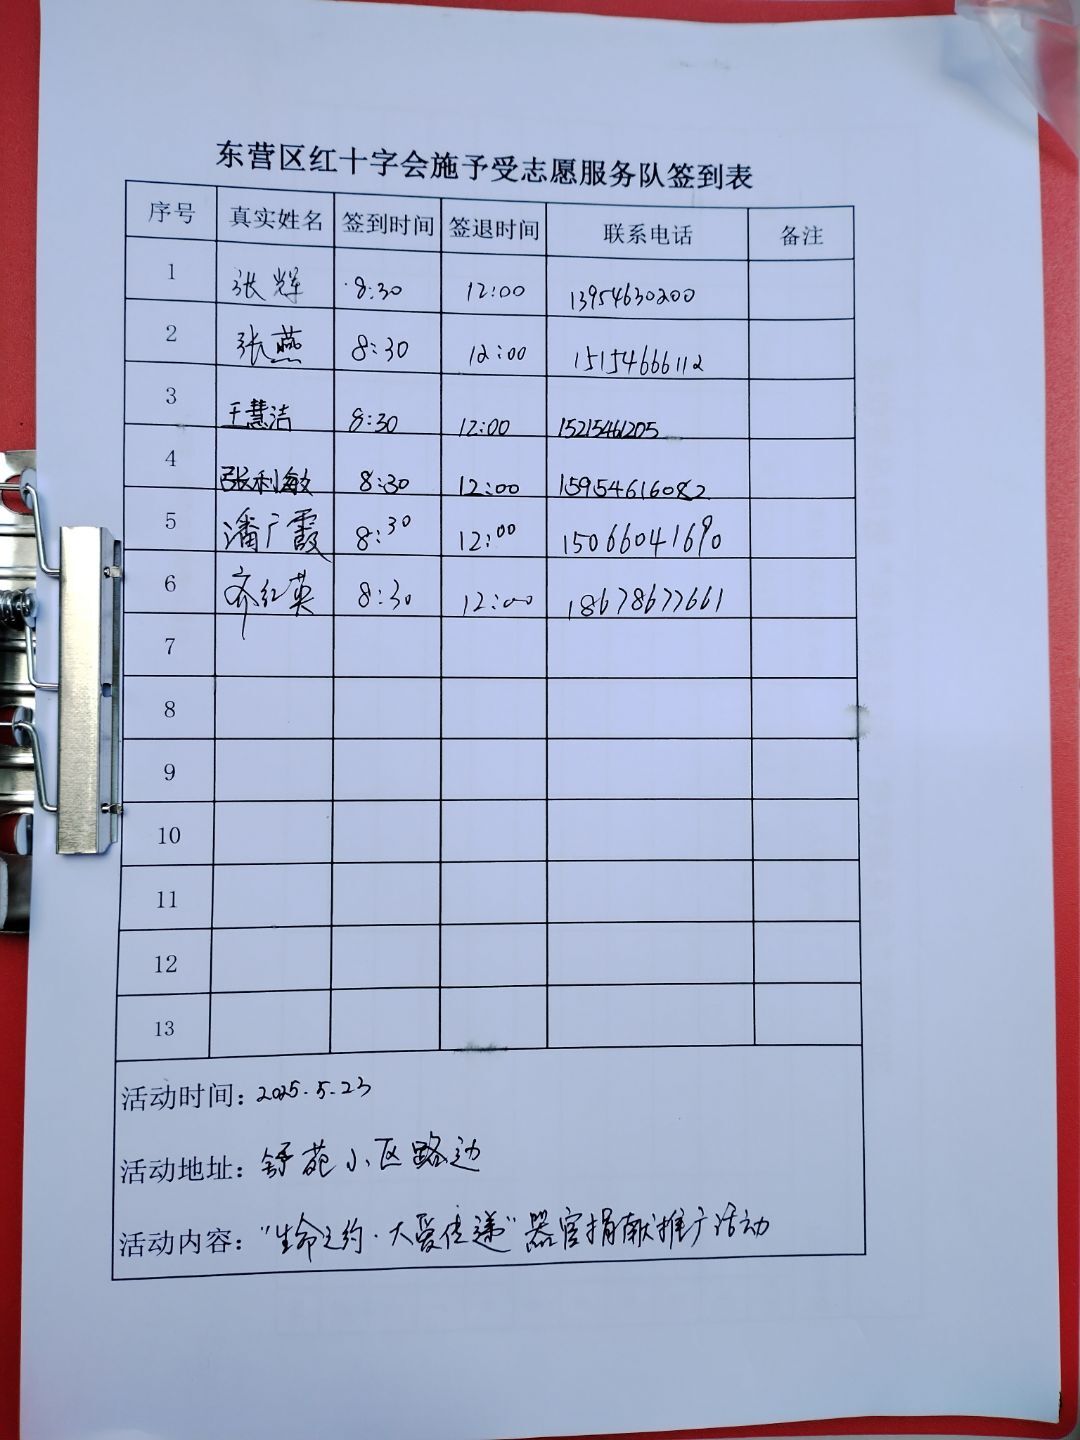 东营区红十字会施予受志愿服务队签到表
序号 真实姓名 签到时间 签退时间 联系电话 备注
1 张辉 8:30 12:00 13954630200
2 张燕 8:30 12:00 15154666112
3 王慧洁 8:30 12:00 15215461205
4 张利敏 8:30 12:00 15954616082
5 潘广霞 8:30 12:00 15066041690
6 齐红英 8:30 12:00 18678677661
7
8
9
10
11
12
13
活动时间：2025.5.23
活动地址：舒苑小区路边
活动内容：“生命之约·大爱传递”器官捐献推广活动